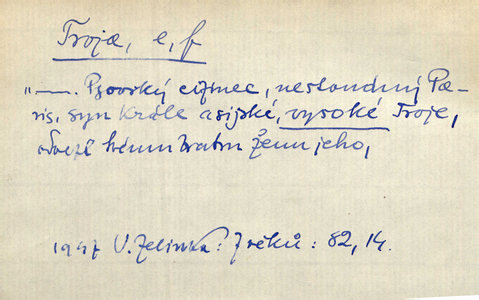 Troja, e, f
"—. Psovský cizinec, nestoudný Pa-
ris, syn krále asijské, vysoké Troje,
odvezl ženu jeho,
1947 V. Zelinka: Z věků: 82, 14.